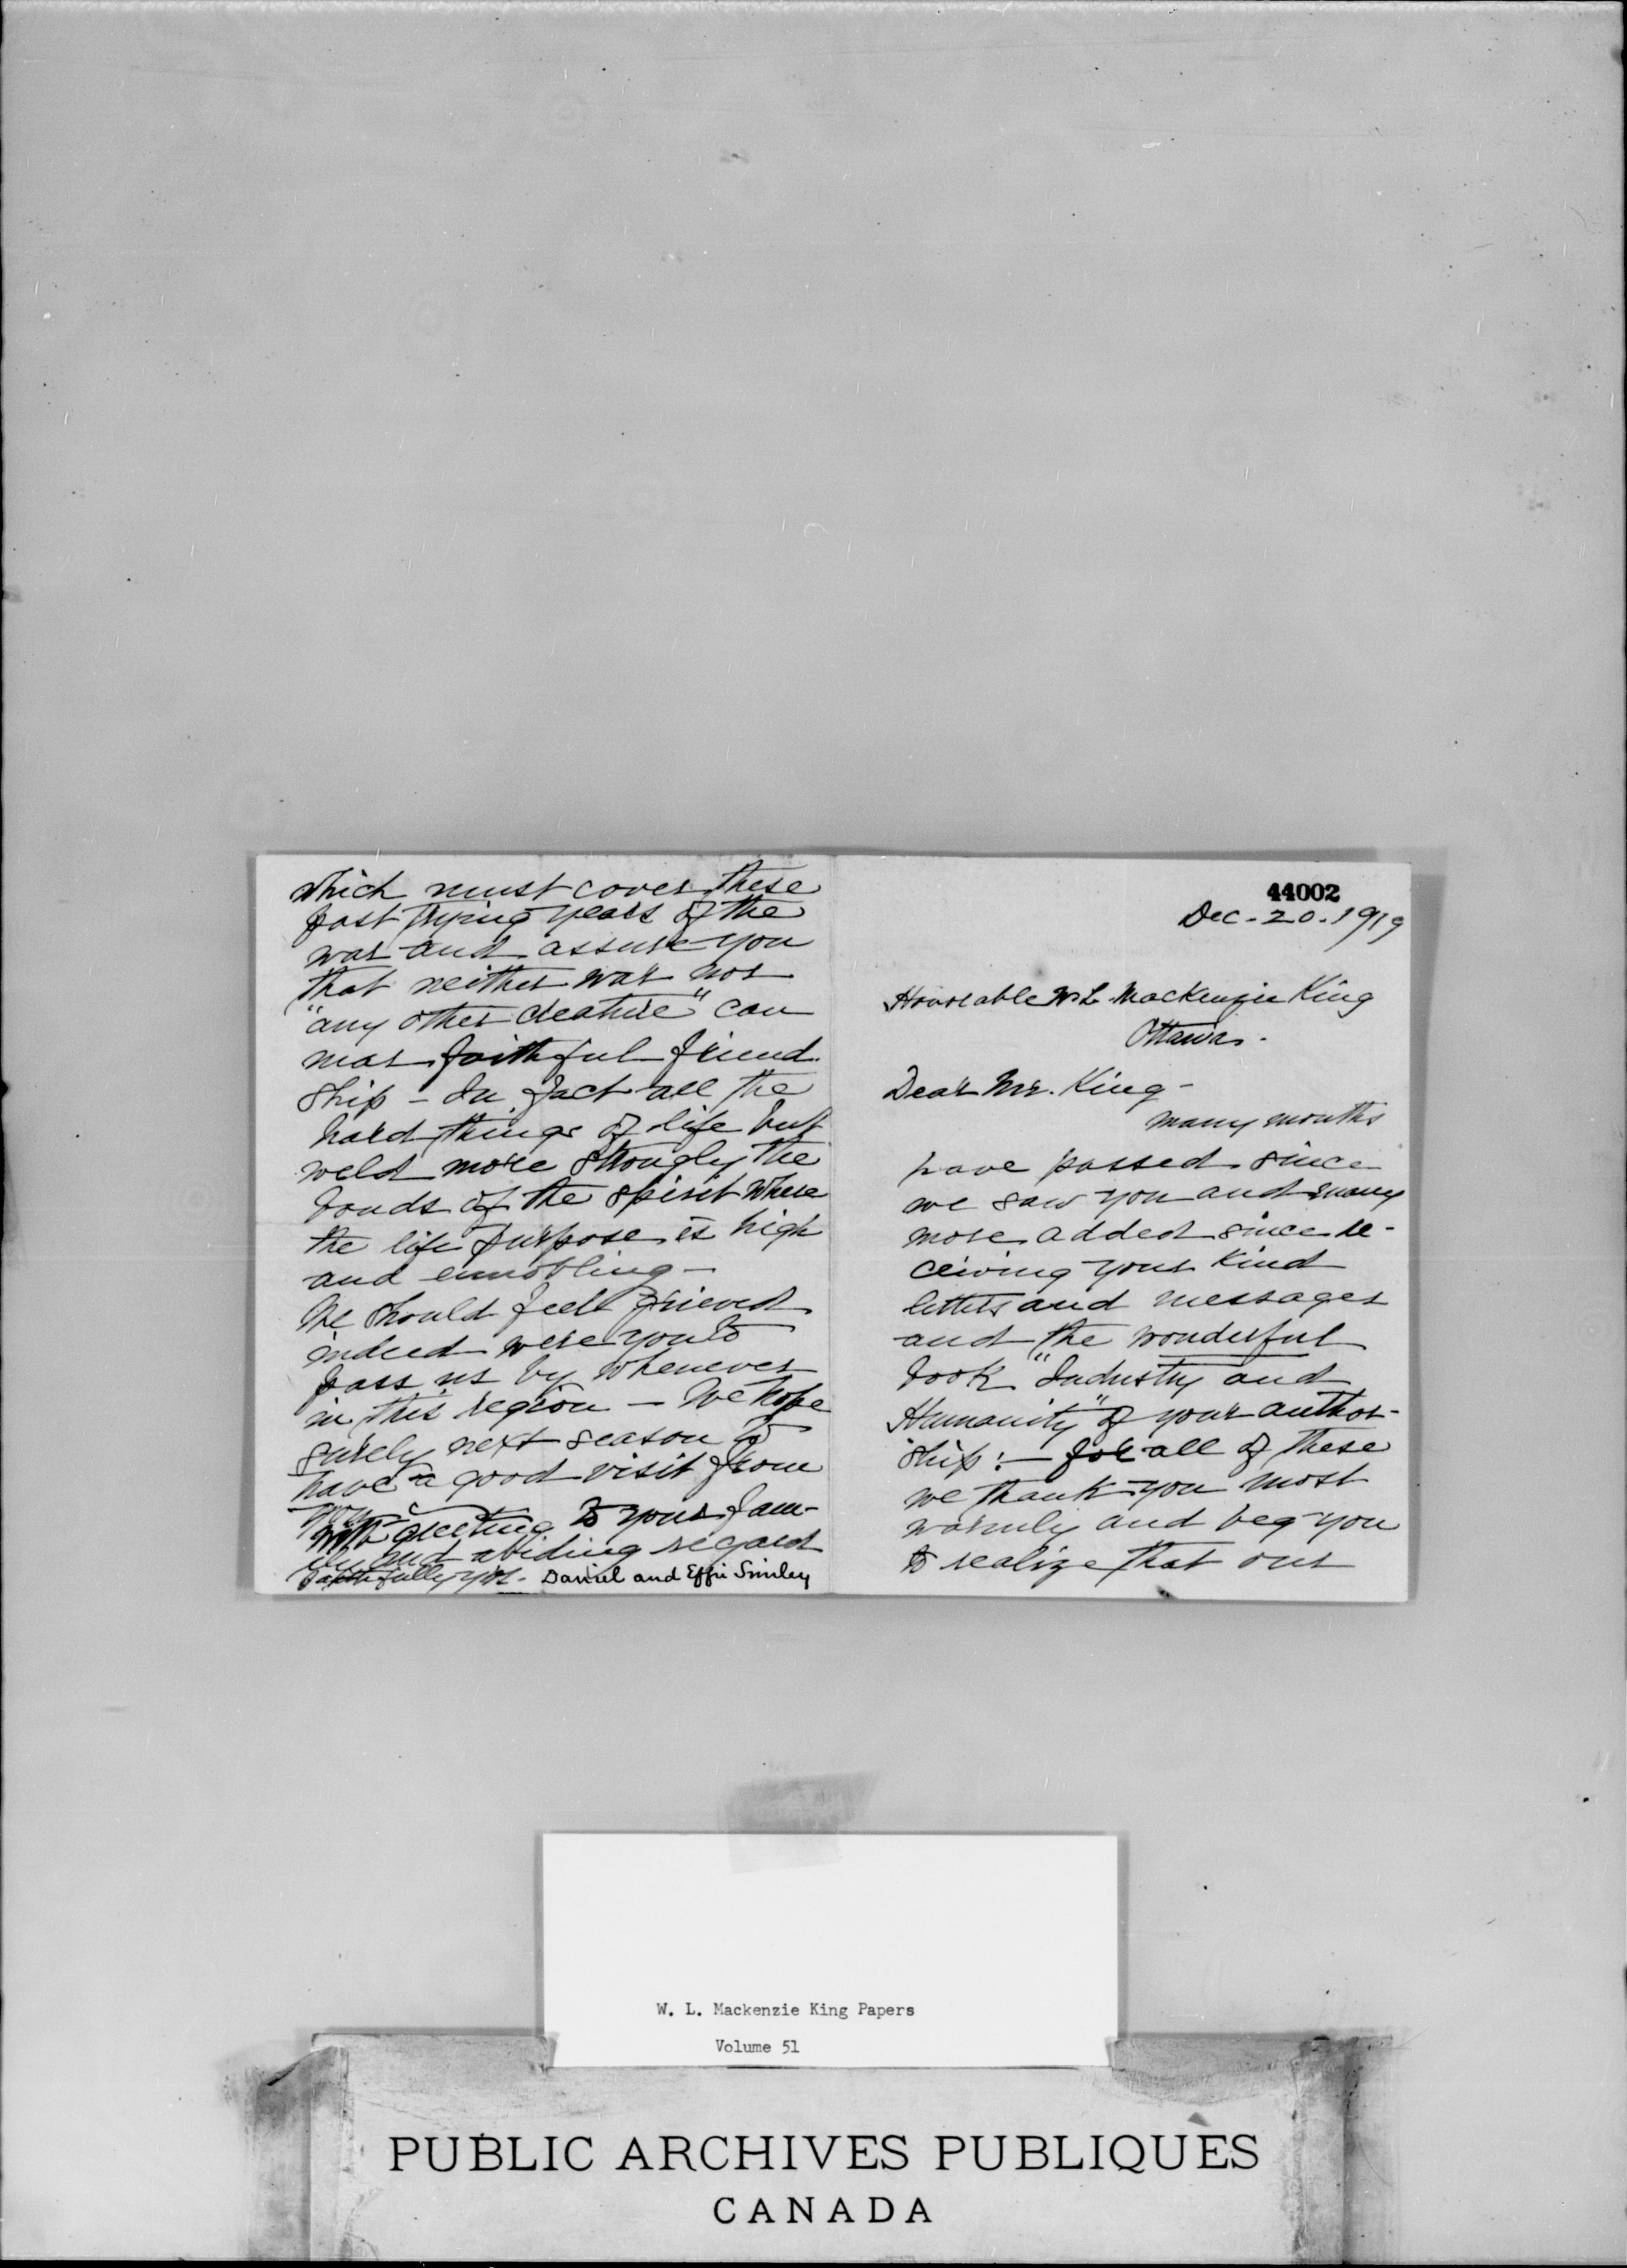 44002
Dec - 20 - 1919
Honorable W L Mackenzie King
Ottawa -
Dear Mr. King -
Many months
have passed since
we saw you and many
more added since re-
ceiving your kind
letters and messages
and the wonderful
book "Industry and
Humanity" of your author-
ship :- for all of these
we thank you most
warmly and beg you
to realize that our
which must cover these
past trying years of the
war and assure you
that neither war nor
"any other creature" can
mar faithful friend-
ship - In fact all the
hard things of life but
weld more strongly the
bonds of the spirit where
the life purpose is high
and ennobling -
We should feel grieved
indeed were you to
pass us by whenever
in this region - We hope
surely next season to
have a good visit from
you -
With greeting to your fam-
ily and abiding regard
Faithfully yrs - Daniel and Effie Smiley
W. L. Mackenzie King Papers
Volume 51
PUBLIC ARCHIVES PUBLIQUES
CANADA